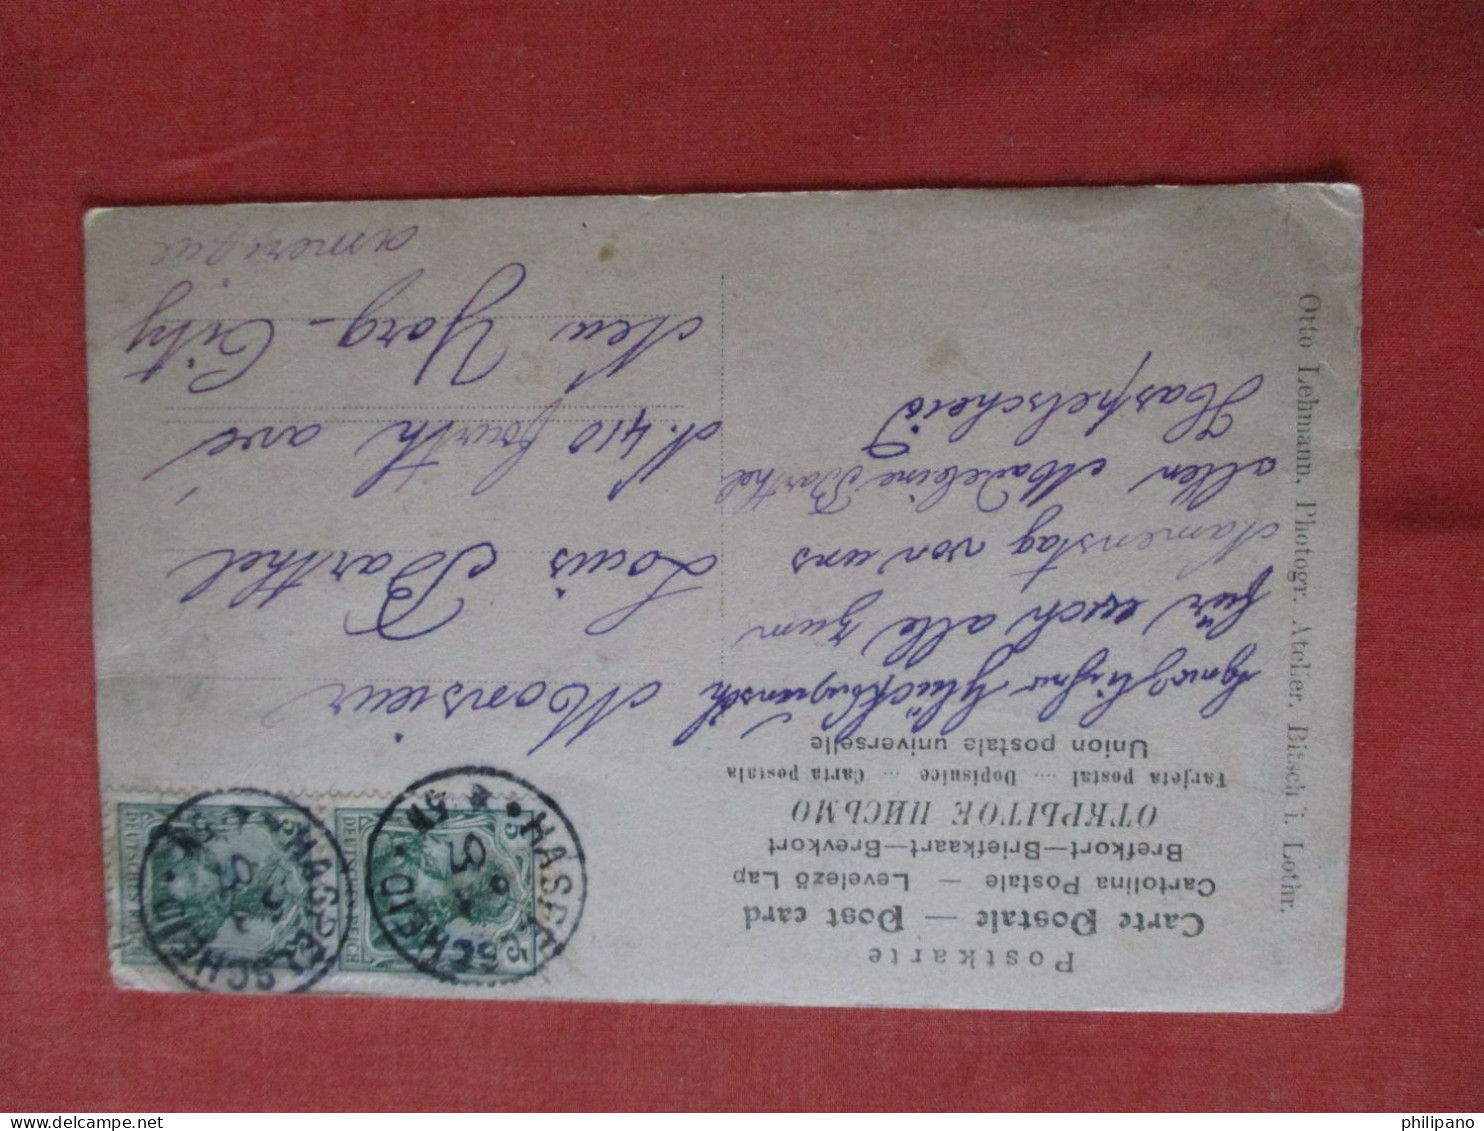 Postkarte
Carte Postale — Post card
Cartolina Postale — Levelező Lap
Brefkort—Briefkaart—Brevkort
ОТКРЫТОЕ ПИСЬМО
Tarjeta postal ... Dopisnice ... Carta postala
Union postale universelle
Glückwunsch
für euch alle zum
Namenstag von uns
allen Madeleine Barthel
Haspelscheid
Monsieur
Louis Barthel
N. 410 fourth ave
New Yorg - City
amerique
Otto Lehmann, Photogr. Atelier. Bitsch i. Lothr.
HASPELSCHEID
5N
5 5
DEUTSCHES REICH
HASPELSCHEID
5N
DEUTSCHES REICH
philipano